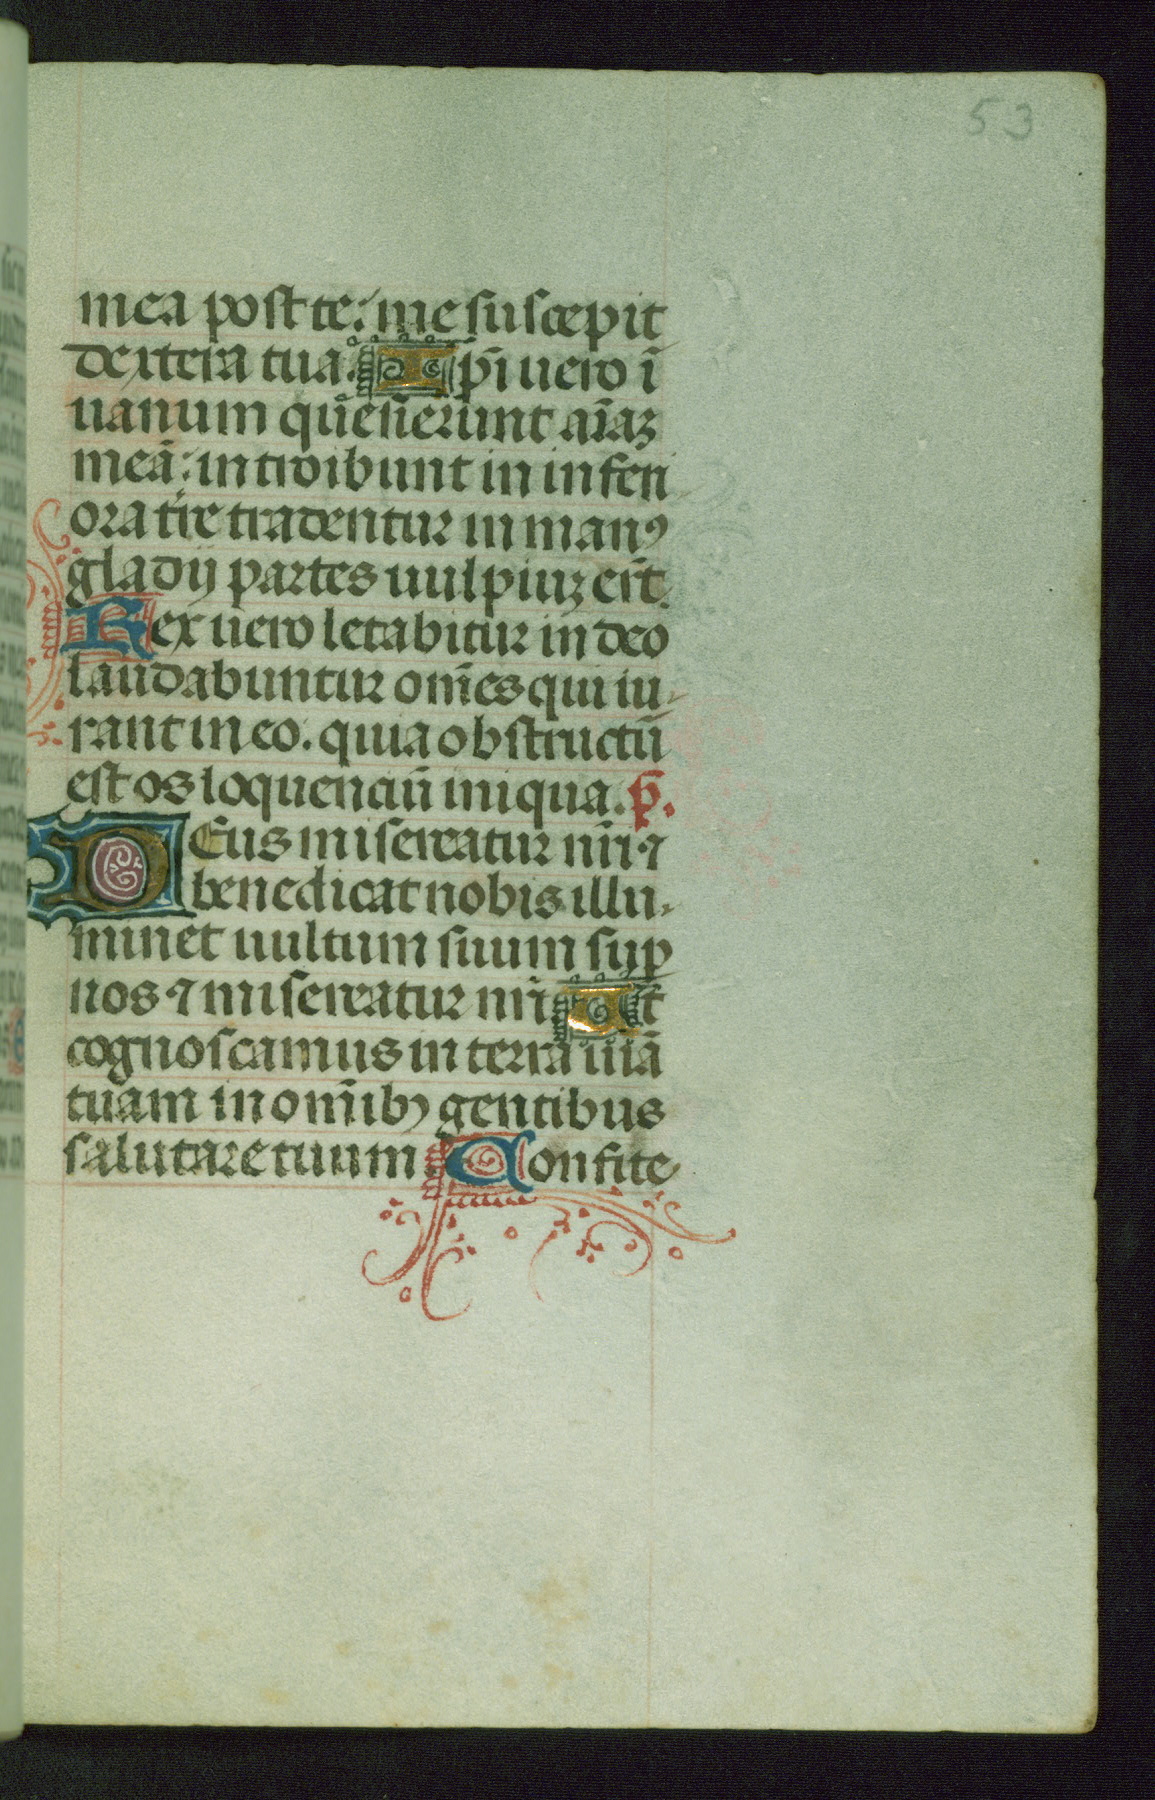 53
mea post te: me suscepit
dextera tua. Ip̄i uero ī
uanum quēsierunt aīaꝫ
meā: introibunt in inferi
ora tr̄re tradentur in manꝯ
gladij partes uulpiuꝫ erūt.
Rex uero letabitur in deo
laudabuntur om̄es qui iu-
rant in eo. quia obstructū
est os loquenciū iniqua. p̄.
DEus misereatur nr̄i ⁊
benedicat nobis illu-
minet uultum suum suꝑ
nos ⁊ misereatur nr̄i. Ut
cognoscamus in terra uiā
tuam in om̄ibꝫ gentibus
salutare tuum. Confite